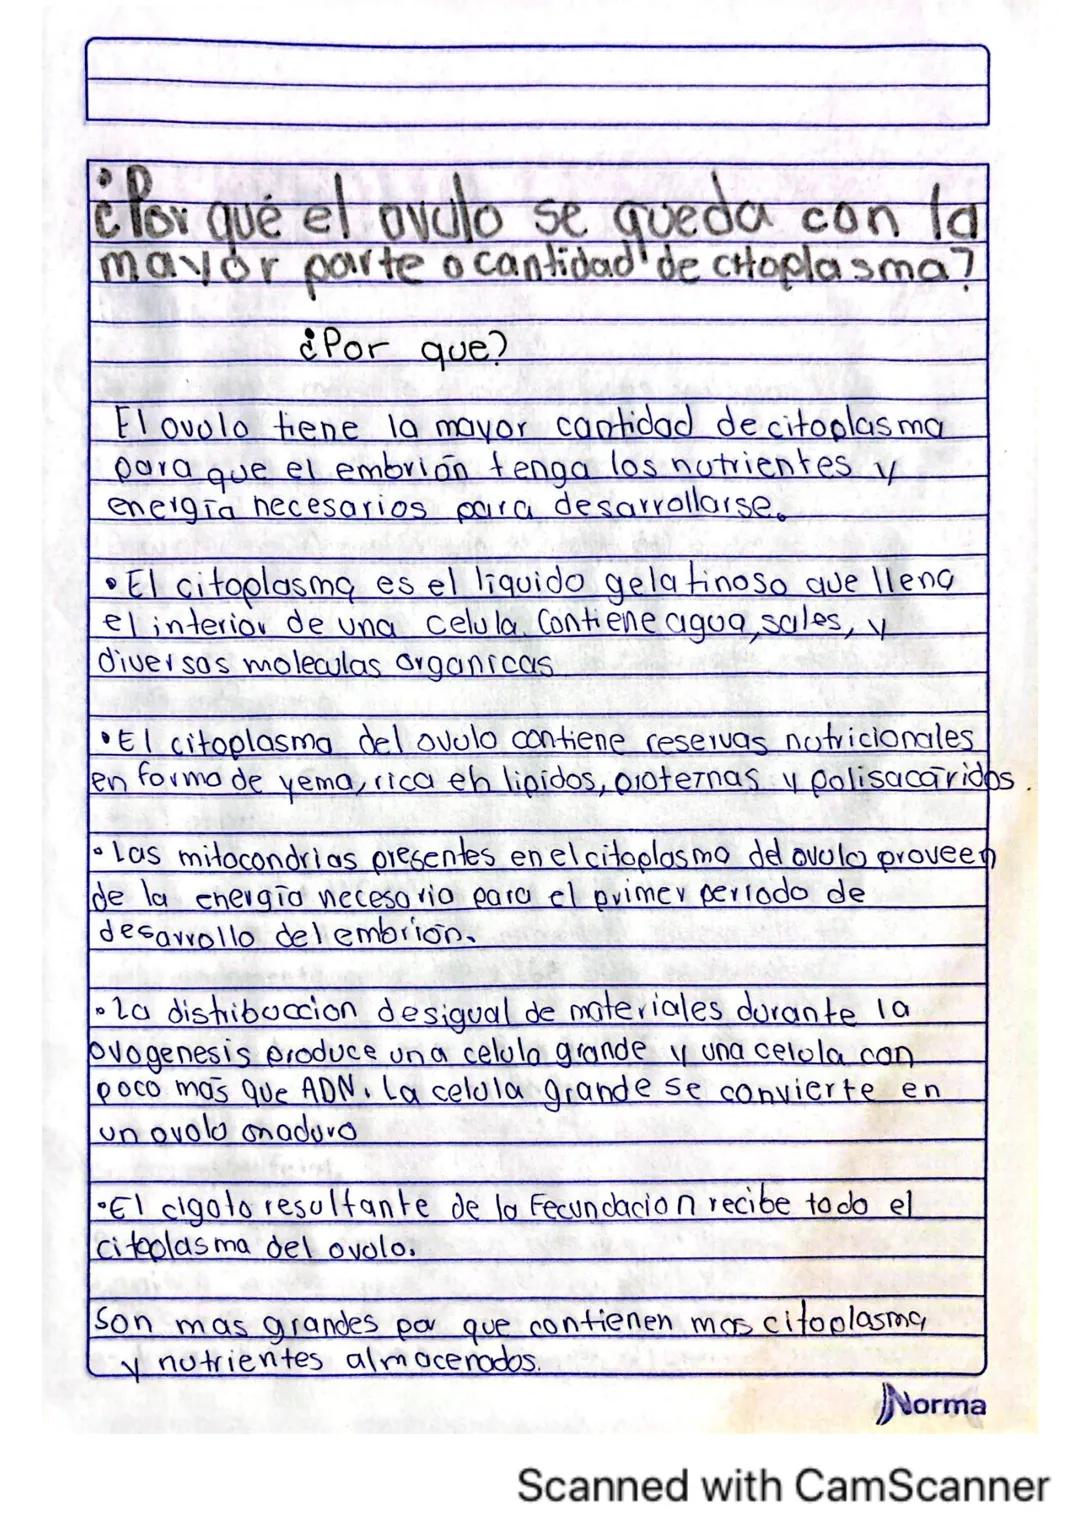 ¿Por qué el ovulo se queda con la
mayor parte o cantidad de citoplasma?
¿Por que?
El ovulo tiene la mayor cantidad de citoplasma
para que el embrión tenga los nutrientes y
energía necesarios para desarrollarse.
• El citoplasma es el liquido gelatinoso que llena
el interior de una celula. Contiene agua, sales, y
diversas moleculas organicas.
• El citoplasma del ovulo contiene reservas nutricionales
en forma de yema, rica en lipidos, proteínas y polisacáridos.
• las mitocondrias presentes en el citoplasma del ovulo proveen
de la energía necesaria para el primer periodo de
desarrollo del embrión.
• La distribuccion desigual de materiales durante la
ovogenesis produce una celula grande y una celula con
poco más que ADN. La celula grande se convierte en
un ovulo maduro
• El cigoto resultante de la Fecundacion recibe todo el
citoplasma del ovulo.
Son mas grandes por que contienen mas citoplasma,
y nutrientes almacenados.
Norma
Scanned with CamScanner